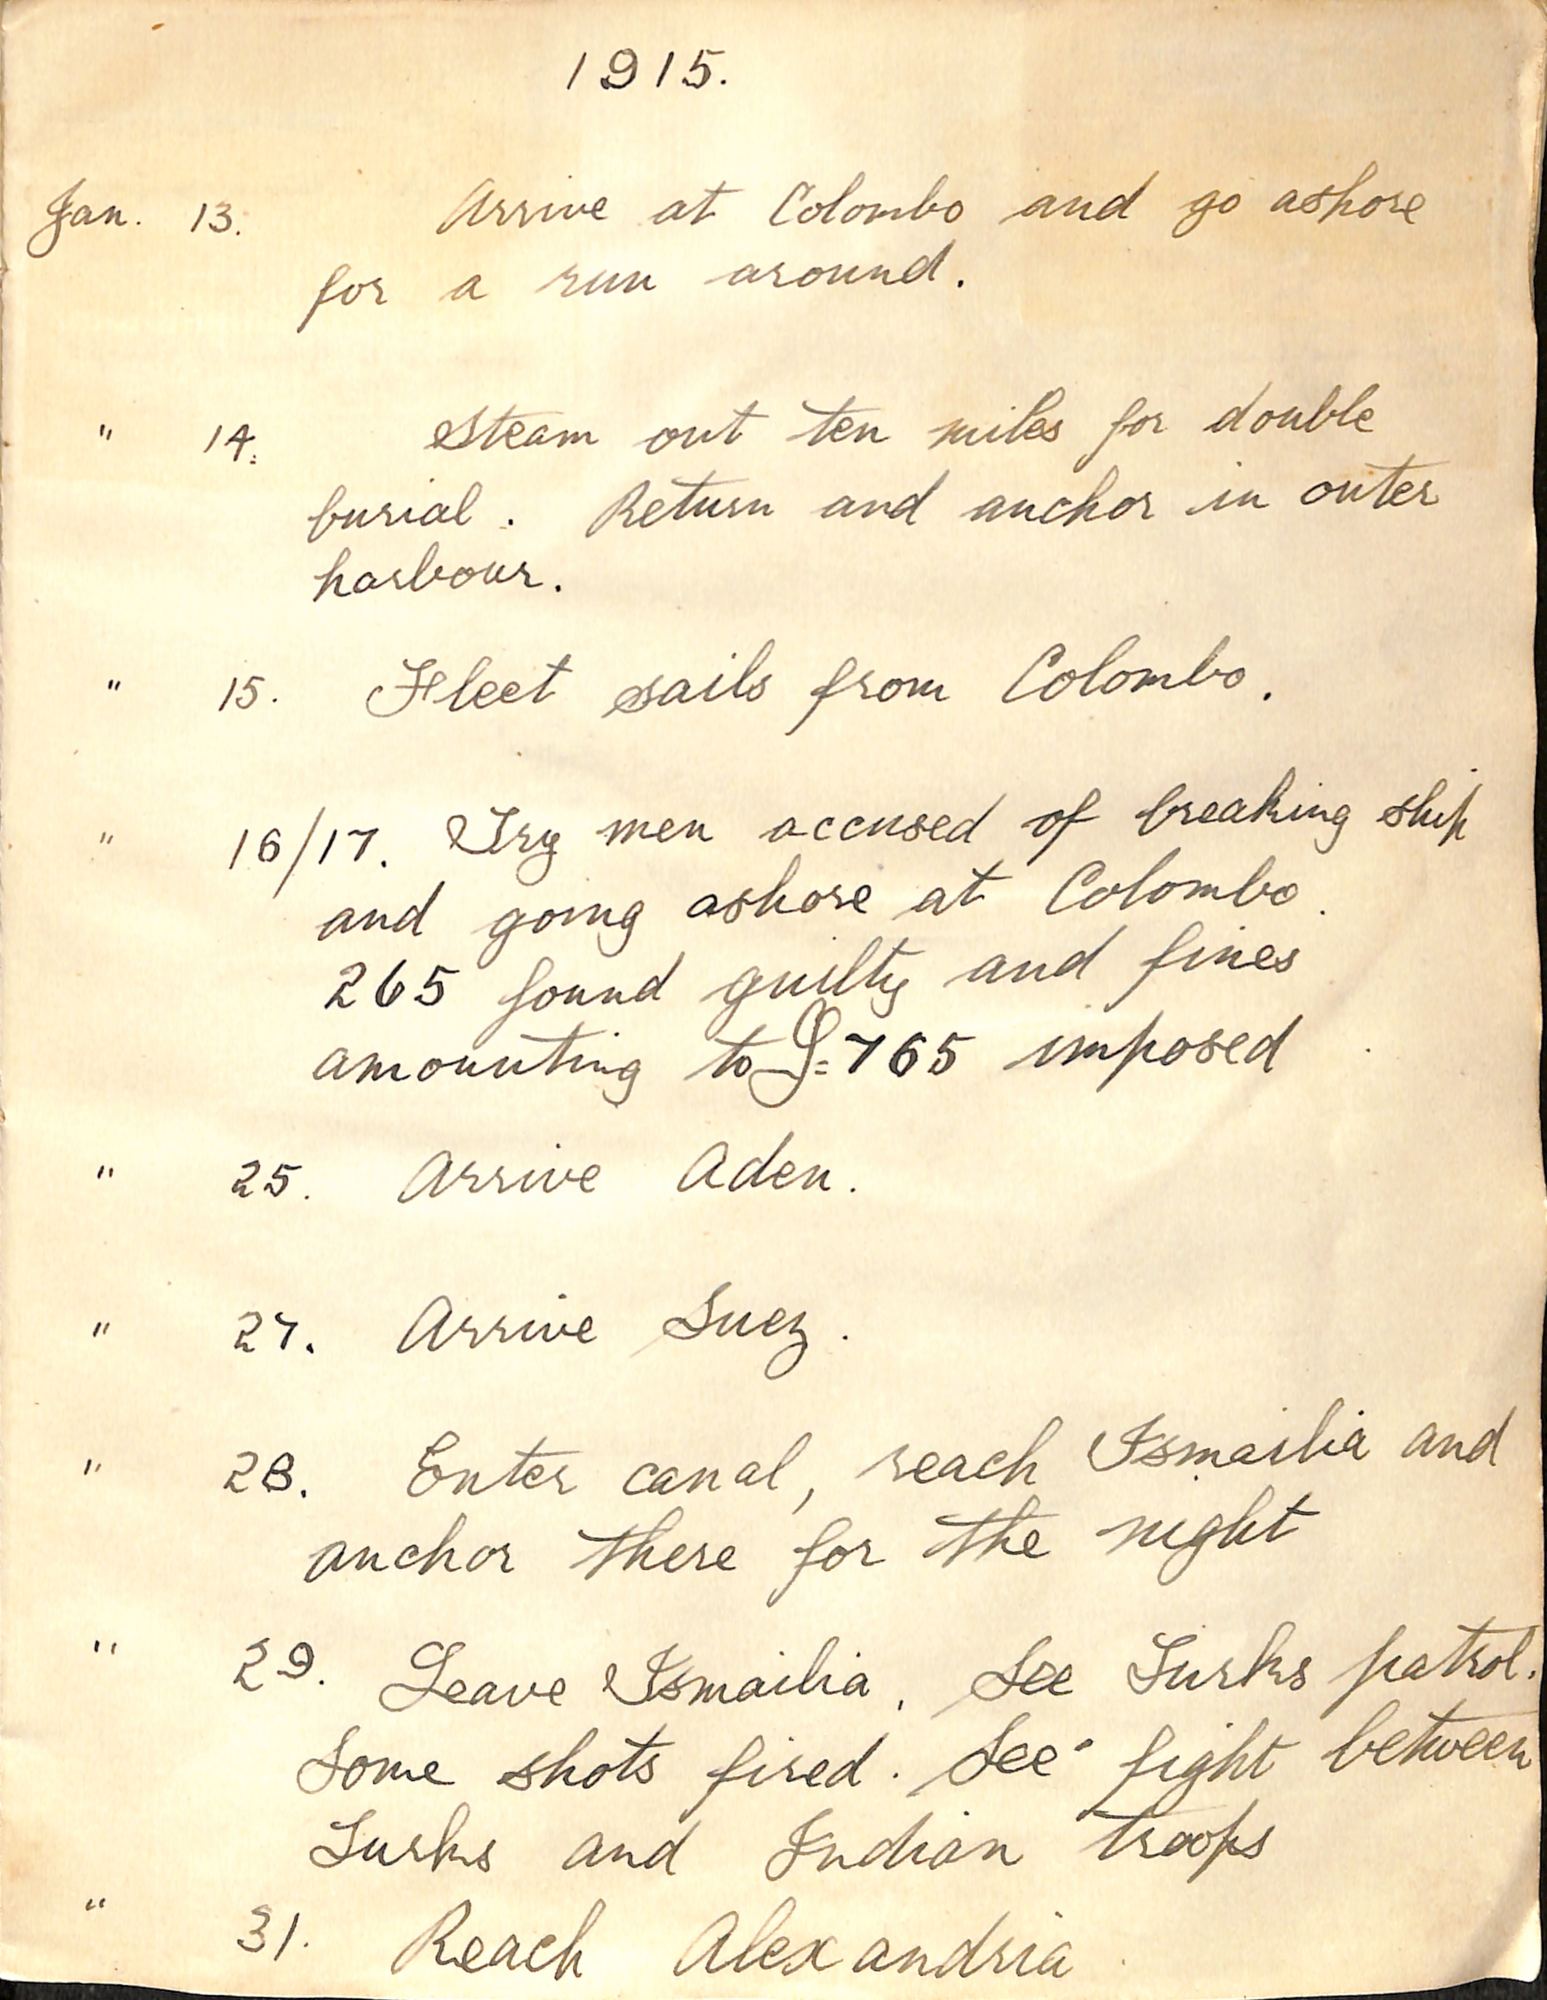 1915.
Jan. 13. Arrive at Colombo and go ashore
for a run around.
" 14. Steam out ten miles for double
burial. Return and anchor in outer
harbour.
" 15. Fleet sails from Colombo.
" 16/17. Try men accused of breaking ship
and going ashore at Colombo.
265 found guilty and fines
amounting to £765 imposed
" 25. Arrive Aden.
" 27. Arrive Suez.
" 28. Enter canal, reach Ismailia and
anchor there for the night
" 29. Leave Ismailia. See Turks patrol.
Some shots fired. See fight between
Turks and Indian troops
" 31. Reach Alexandria